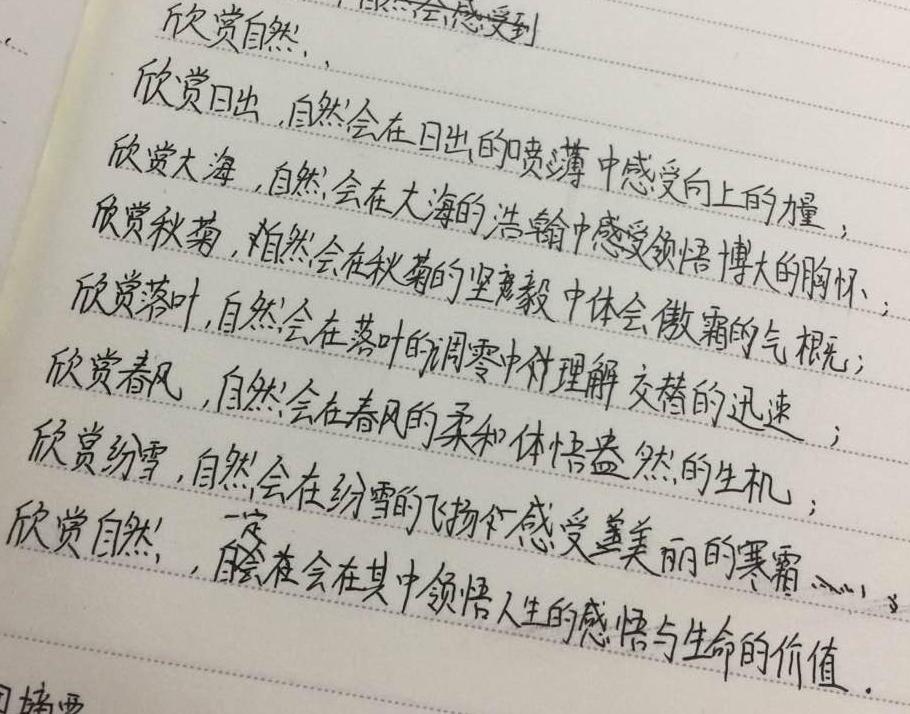 会感受到
欣赏自然，
欣赏日出，自然会在日出的喷薄中感受向上的力量；
欣赏大海，自然会在大海的浩瀚中感受领悟博大的胸怀；
欣赏秋菊，自然会在秋菊的坚毅中体会傲霜的气概；
欣赏落叶，自然会在落叶的凋零中理解交替的迅速；
欣赏春风，自然会在春风的柔和体悟盎然的生机；
欣赏纷雪，自然会在纷雪的飞扬个感受美丽的寒霜……；
欣赏自然，一定会在其中领悟人生的感悟与生命的价值．
摘要